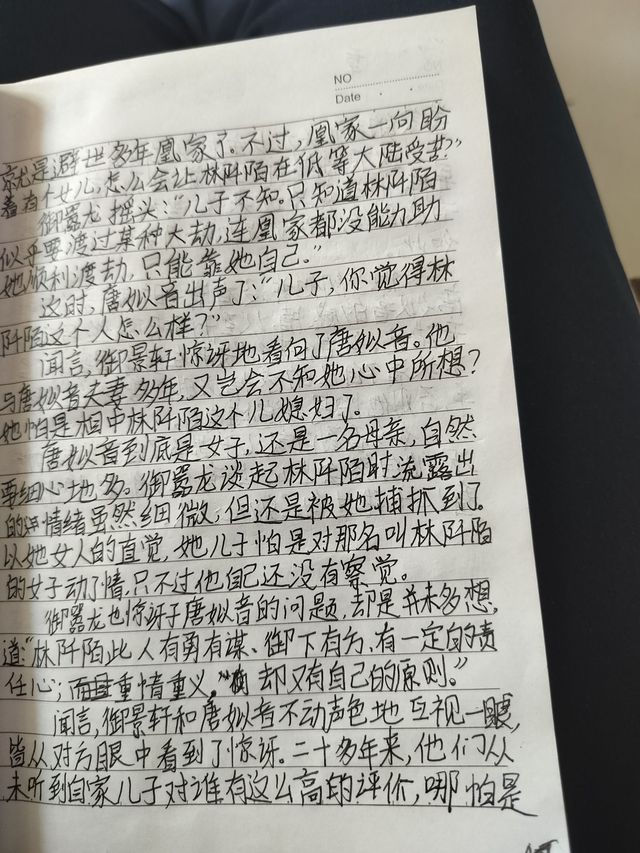 NO
Date
就是避世多年凰家了。不过，凰家一向盼
着有个女儿，怎么会让林阡陌在低等大陆受苦？”
御嚣龙摇头：“儿子不知。只知道林阡陌
似乎要渡过某种大劫，连凰家都没能力助
她顺利渡劫，只能靠她自己。”
这时，唐姒音出声了：“儿子，你觉得林
阡陌这个人怎么样？”
闻言，御景轩惊讶地看向了唐姒音。他
与唐姒音夫妻多年，又岂会不知她心中所想？
她怕是相中林阡陌这个儿媳妇了。
唐姒音到底是女子，还是一名母亲，自然
要细心地多。御嚣龙谈起林阡陌时流露出
的情绪虽然细微，但还是被她捕抓到了。
以她女人的直觉，她儿子怕是对那名叫林阡陌
的女子动了情，只不过他自己还没有察觉。
御嚣龙也惊讶于唐姒音的问题，却是并未多想，
道：“林阡陌此人有勇有谋、御下有方、有一定的责
任心；而且重情重义，却又有自己的原则。”
闻言，御景轩和唐姒音不动声色地互视一眼，
皆从对方眼中看到了惊讶。二十多年来，他们从
未听到自家儿子对谁有这么高的评价，哪怕是